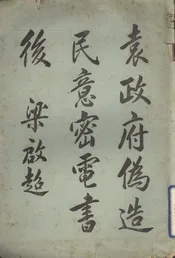 袁政府偽造
民意密電書
後 梁啟超